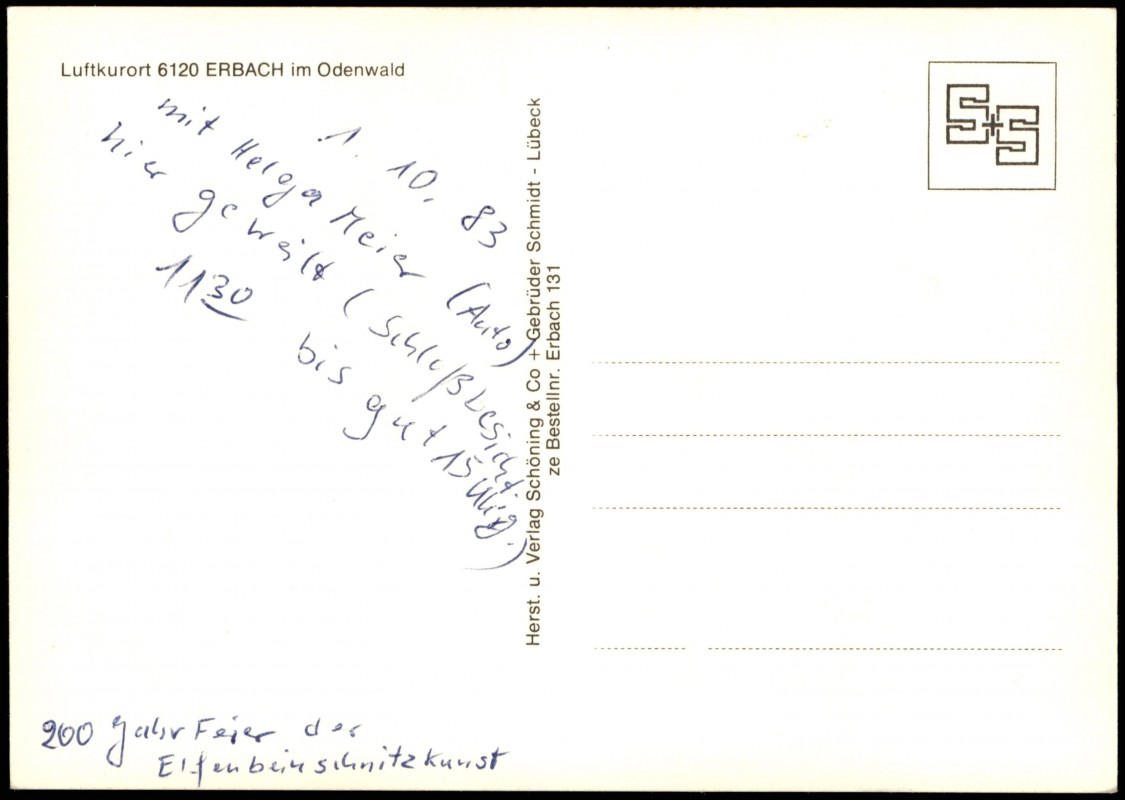 Luftkurort 6120 ERBACH im Odenwald
1. 10. 83
mit Helga Meier (Auto)
hier geweilt (Schloßbesichtig.)
11³⁰ bis gut 15 Uhr
200 Jahr Feier der
Elfenbeinschnitzkunst
Herst. u. Verlag Schöning & Co + Gebrüder Schmidt - Lübeck
ze Bestellnr. Erbach 131
S+S